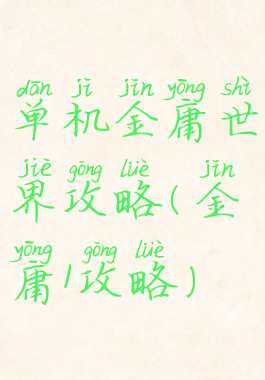 dān jī jīn yōng shì
单机金庸世
jiè gōng lüè jīn
界攻略(金
yōng gōng lüè
庸/攻略)